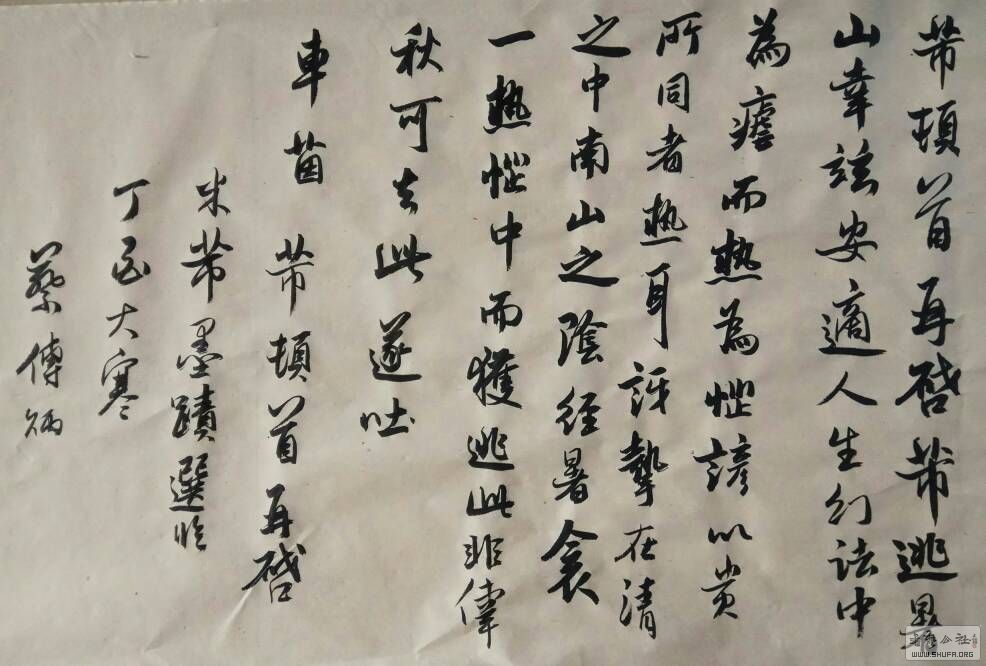 芾頓首再啓芾逃暑
山幸玆安適人生幻法中
為瘧而熱為惱諺以貴
所同者熱耳訝摯在清
之中南山之陰經暑衾
一熱惱中而獲逃此非偉
秋可去此遂吐
車茵 芾頓首再啓
米芾墨蹟選臨
丁酉大寒
蔡傳炳
WWW.SHUFA.ORG